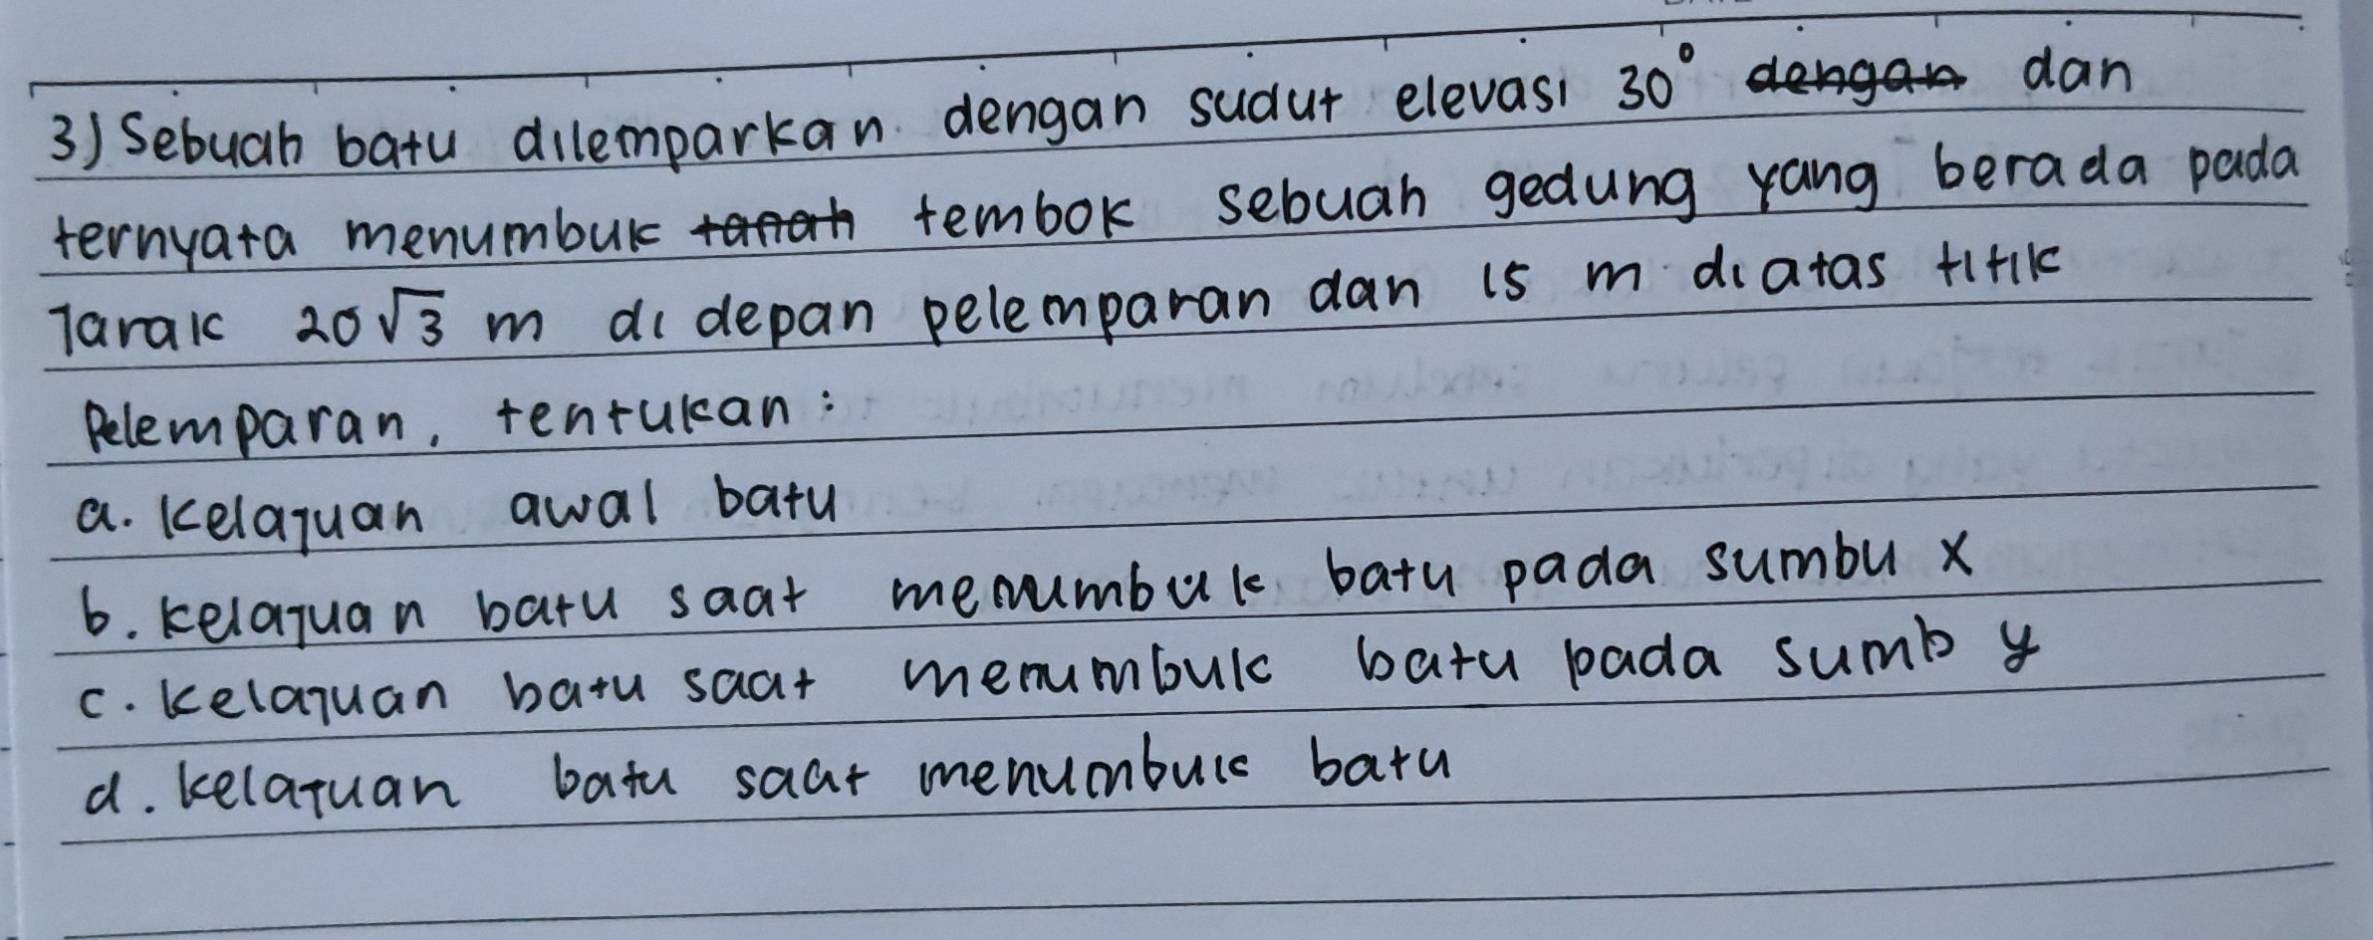 3) Sebuah batu dilemparkan dengan sudut elevasi 30° dengan dan
ternyata menumbuk tanah tembok sebuah gedung yang berada pada
Jarak 20√3 m di depan pelemparan dan 15 m diatas titik
Pelemparan, tentukan:
a. Kelajuan awal batu
b. Kelajuan batu saat menumbuk batu pada sumbu x
c. Kelajuan batu saat menumbuk batu pada sumb y
d. Kelajuan batu saat menumbuk batu